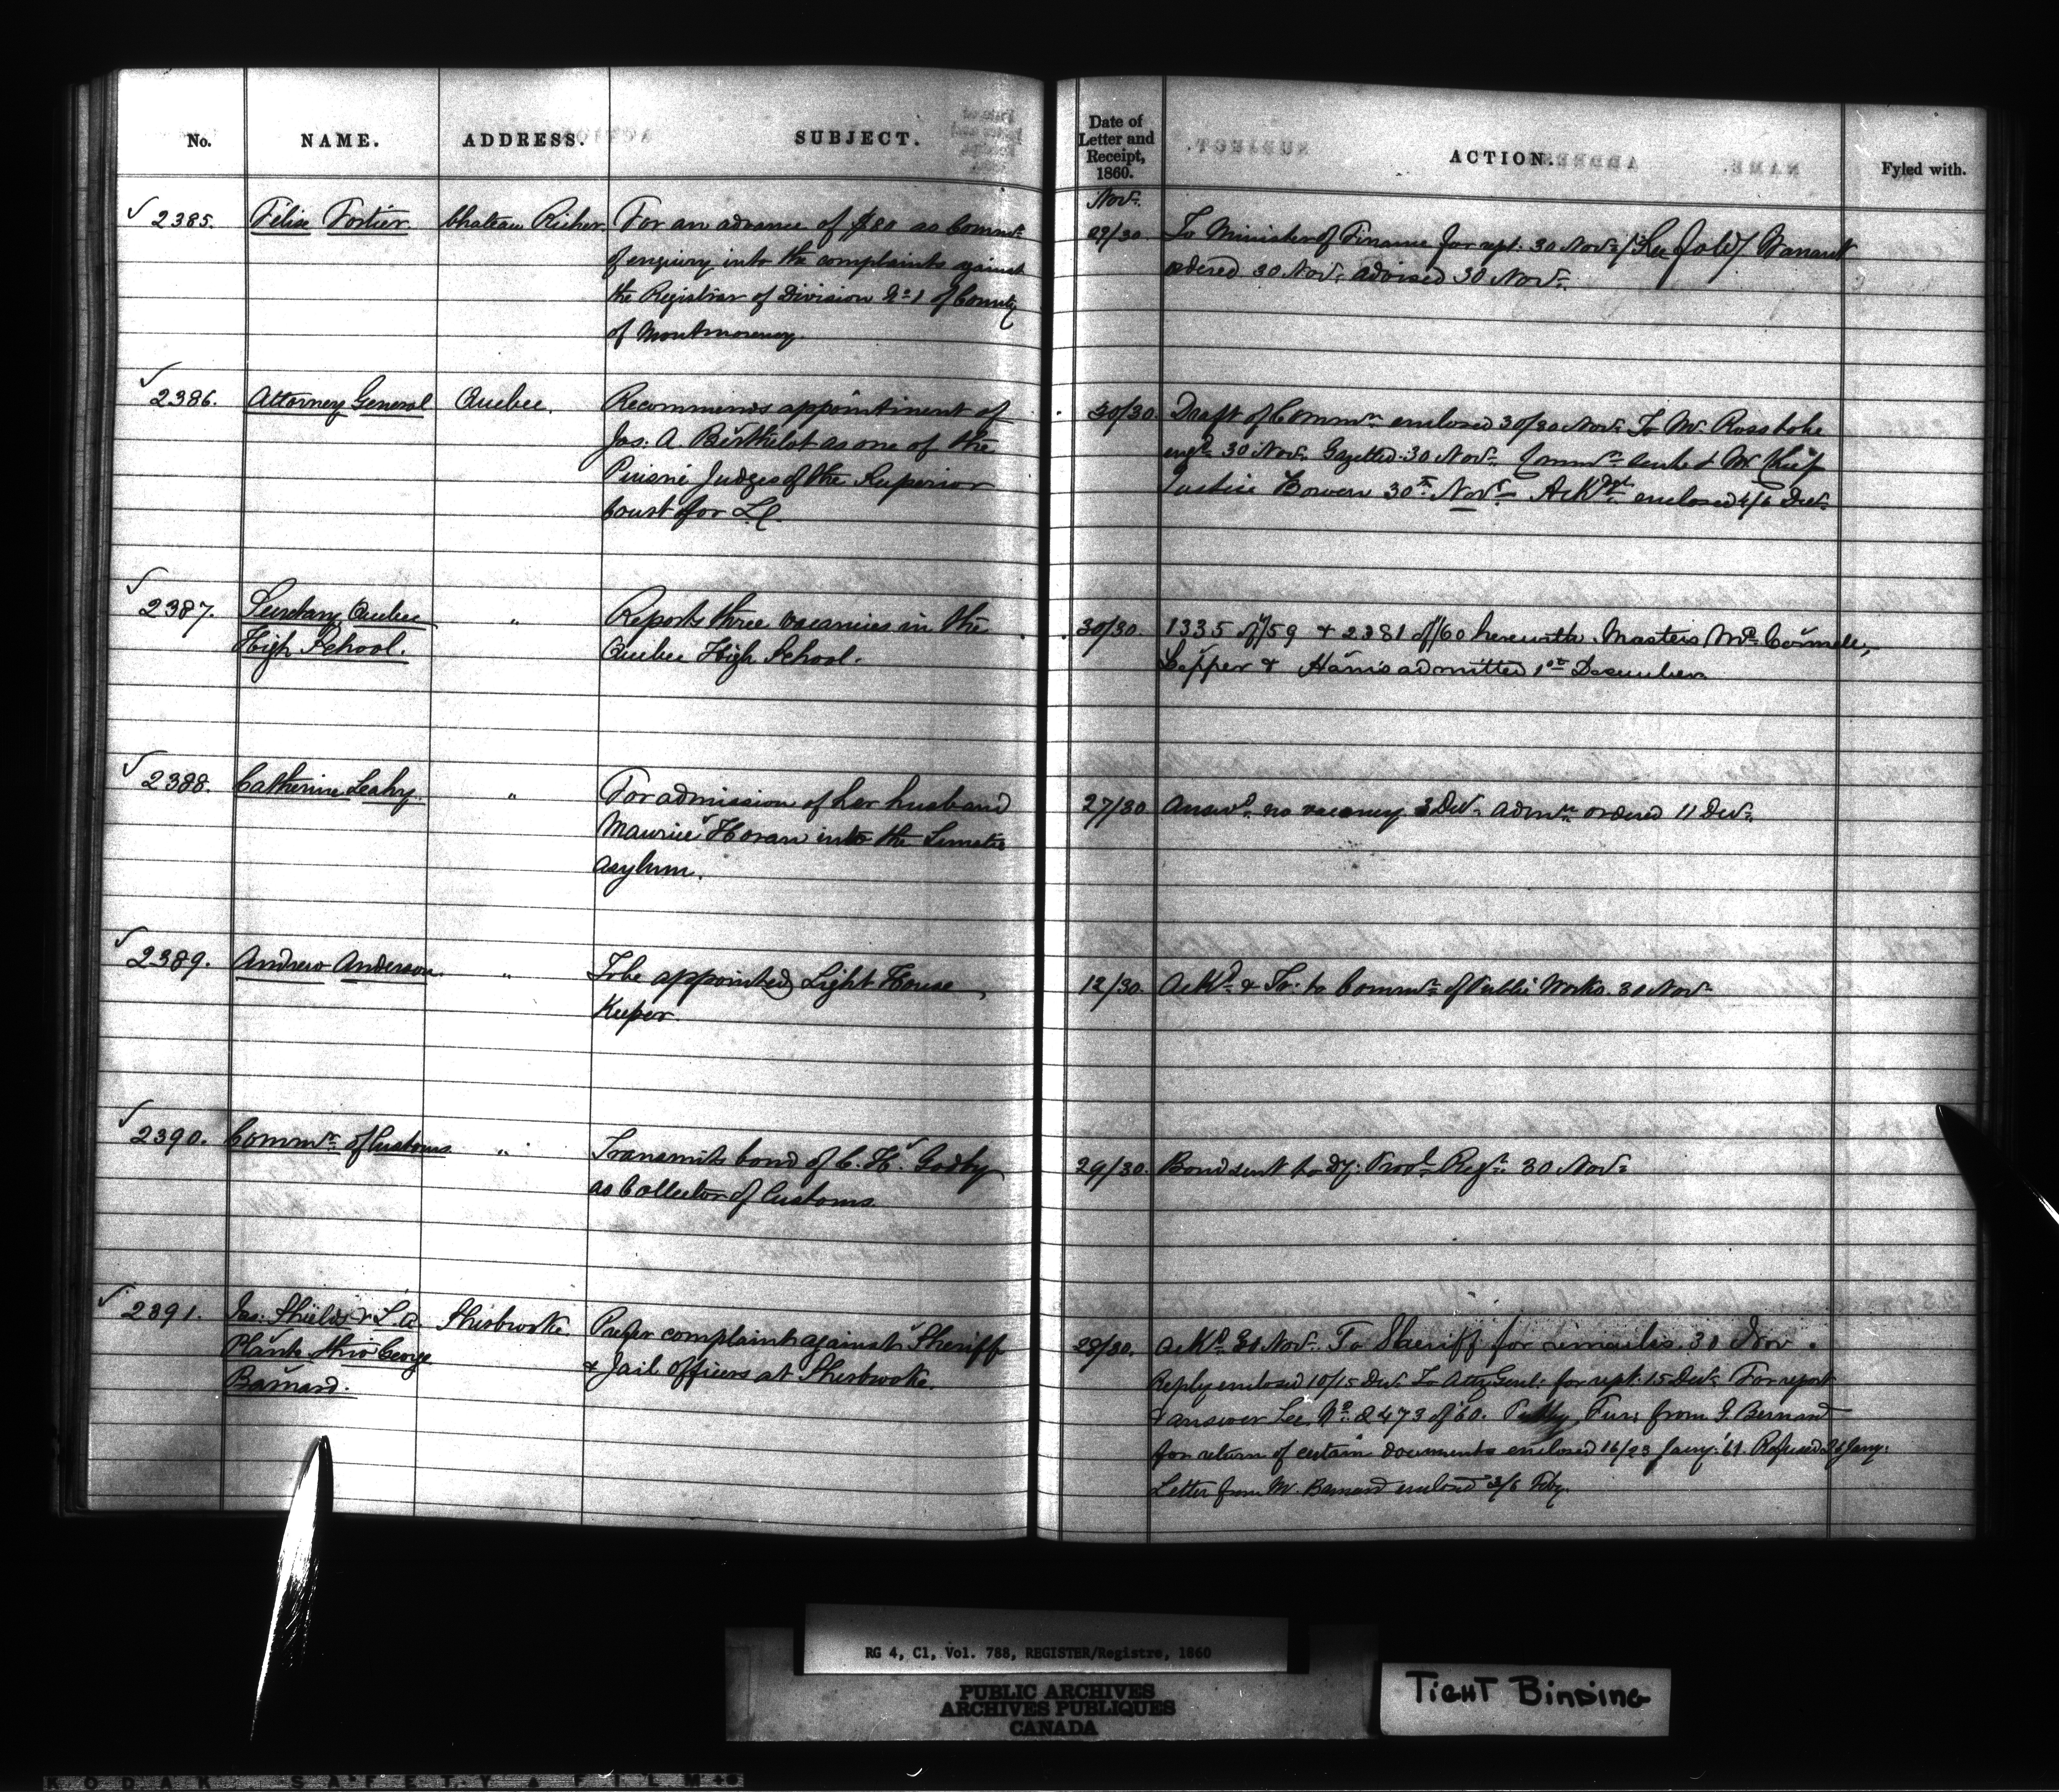 No. NAME. ADDRESS. SUBJECT. Date of Letter and Receipt, 1860. ACTION. Fyled with.
Nov.
2385. Félix Fortier Chateau Richer For an advance of $80 as Commr. 29/30. To Minister of Finance for rept. 30 Nov. Warrant
of enquiry into the complaints against ordered 30 Nov. advised 30 Nov.
the Registrar of Division No 1 of County
of Montmorency.
2386. Attorney General Quebec. Recommends appointment of 30/30. Draft of Commn. enclosed 30/30 Nov. To Mr. Ross to be
Jos. A. Berthelot as one of the engd. 30 Nov. Gazetted 30 Nov. Commn. sent Mr. Chief
Puisné Judges of the Superior Justice Bowen 30th Novr. Ackdgt. enclosed 4/6 Decr.
Court for L.C.
2387. Secretary Quebec " Reports three vacancies in the 30/30. 1335 of /59 & 2381 of /60 herewith. Masters
High School. Quebec High School. Lepper & Harris admitted 1st December
2388. Catherine Leahy. " For admission of her husband 27/30 Answd. no vacancy 3 Dec. admn. ordered 11 Dec.
Maurice Horan into the Lunatic
Asylum.
2389. Andrew Anderson. " To be appointed Light House 12/30. Ackd. & Tr. to Commr. of Public Works. 30 Nov.
Keeper.
2390. Commr. of Customs " Transmits bond of C. H. Godby 29/30. Bond sent to Dy. Provl. Regr. 30 Nov.
as Collector of Customs.
2391. Jas. Shields & L. A. Sherbrooke. Prefer complaint against Sheriff 28/30. Ackd. 30 Nov. To Sheriff for remarks 30 Nov.
Plante thro' George & Jail Officers at Sherbrooke. Reply enclosed 10/15 Dec. To Atty Genl. for rept. 15 Dec. For report
Barnard. & answer See No. 2473 of 60. from G. Barnard
for return of certain documents enclosed 16/23 Jany. '61. Refused 26 Jany.
Letter from Mr. Barnard enclosed Feby.
RG 4, C1, Vol. 788, REGISTER/Registre, 1860
PUBLIC ARCHIVES
ARCHIVES PUBLIQUES
CANADA
TIGHT BINDING
KODAK SAFETY FILM